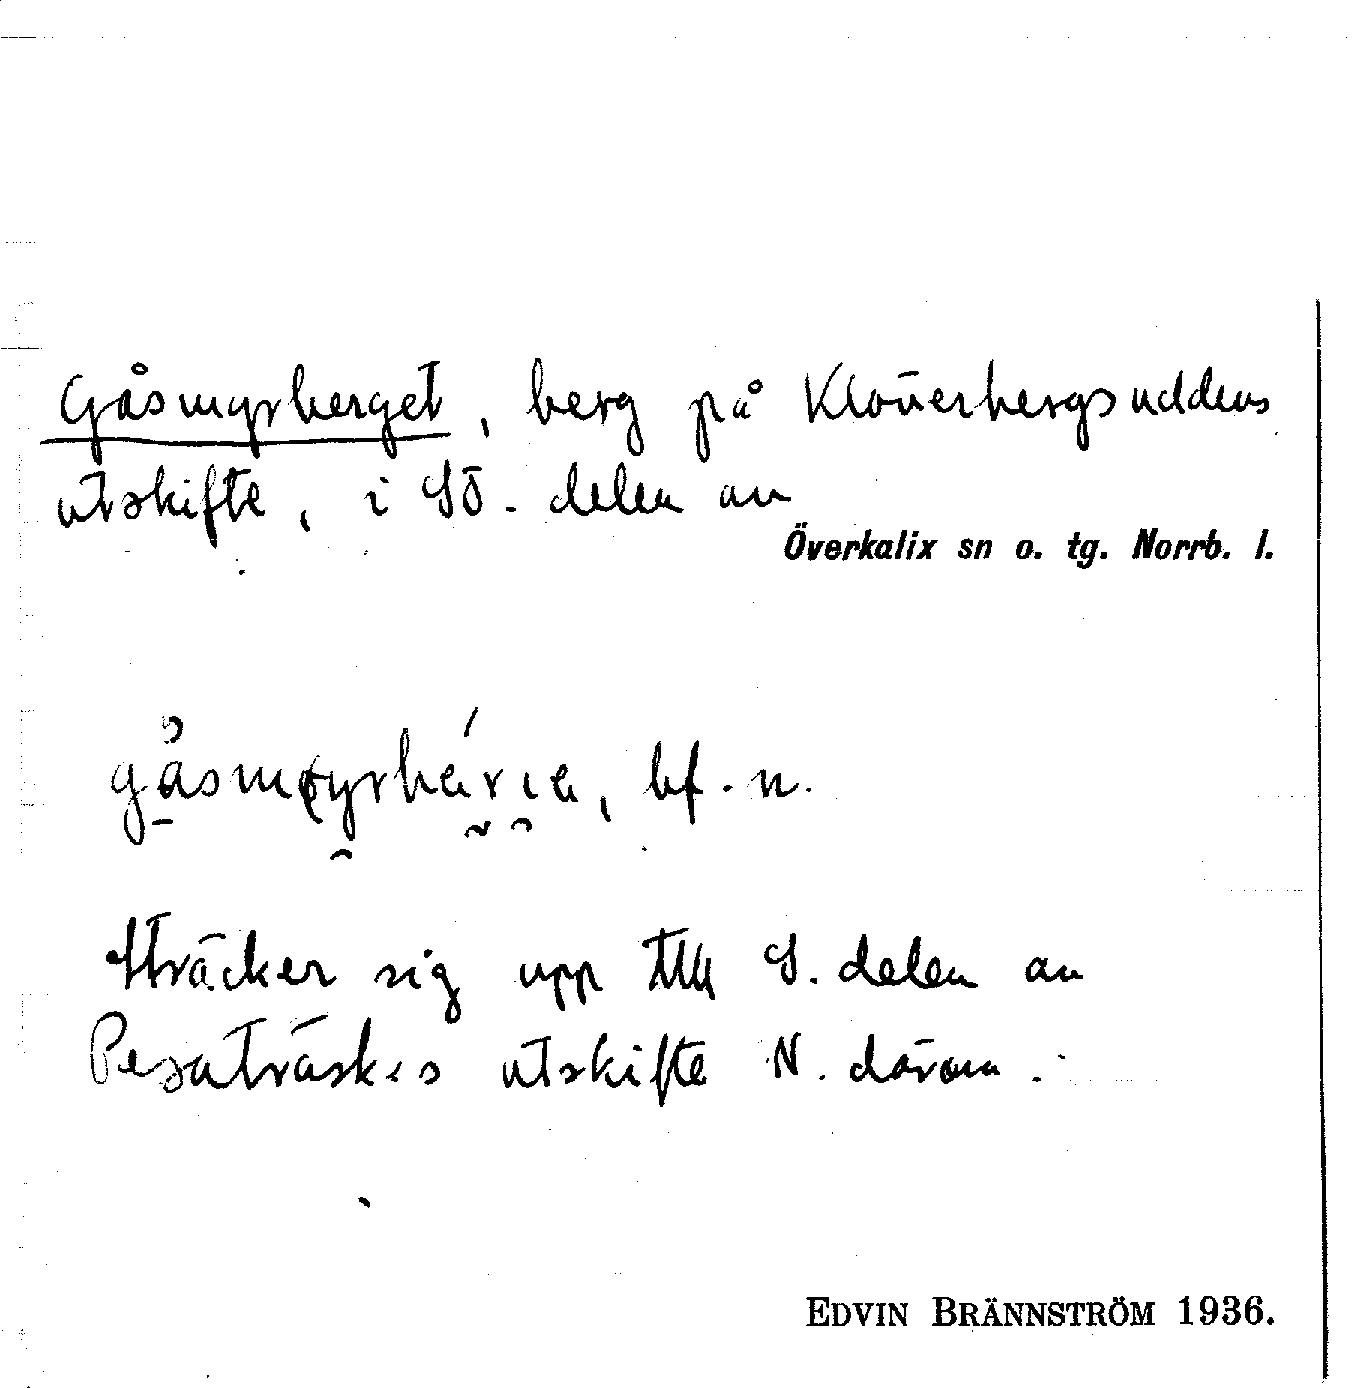 Gåsmyrberget, berg på Klöverbergsuddens
utskifte, i SÖ. delen av
Överkalix sn o. tg. Norrb. l.
bf. n.
Sträcker sig upp till S. delen av
Pesaträskets utskifte N. därom.
EDVIN BRÄNNSTRÖM 1936.